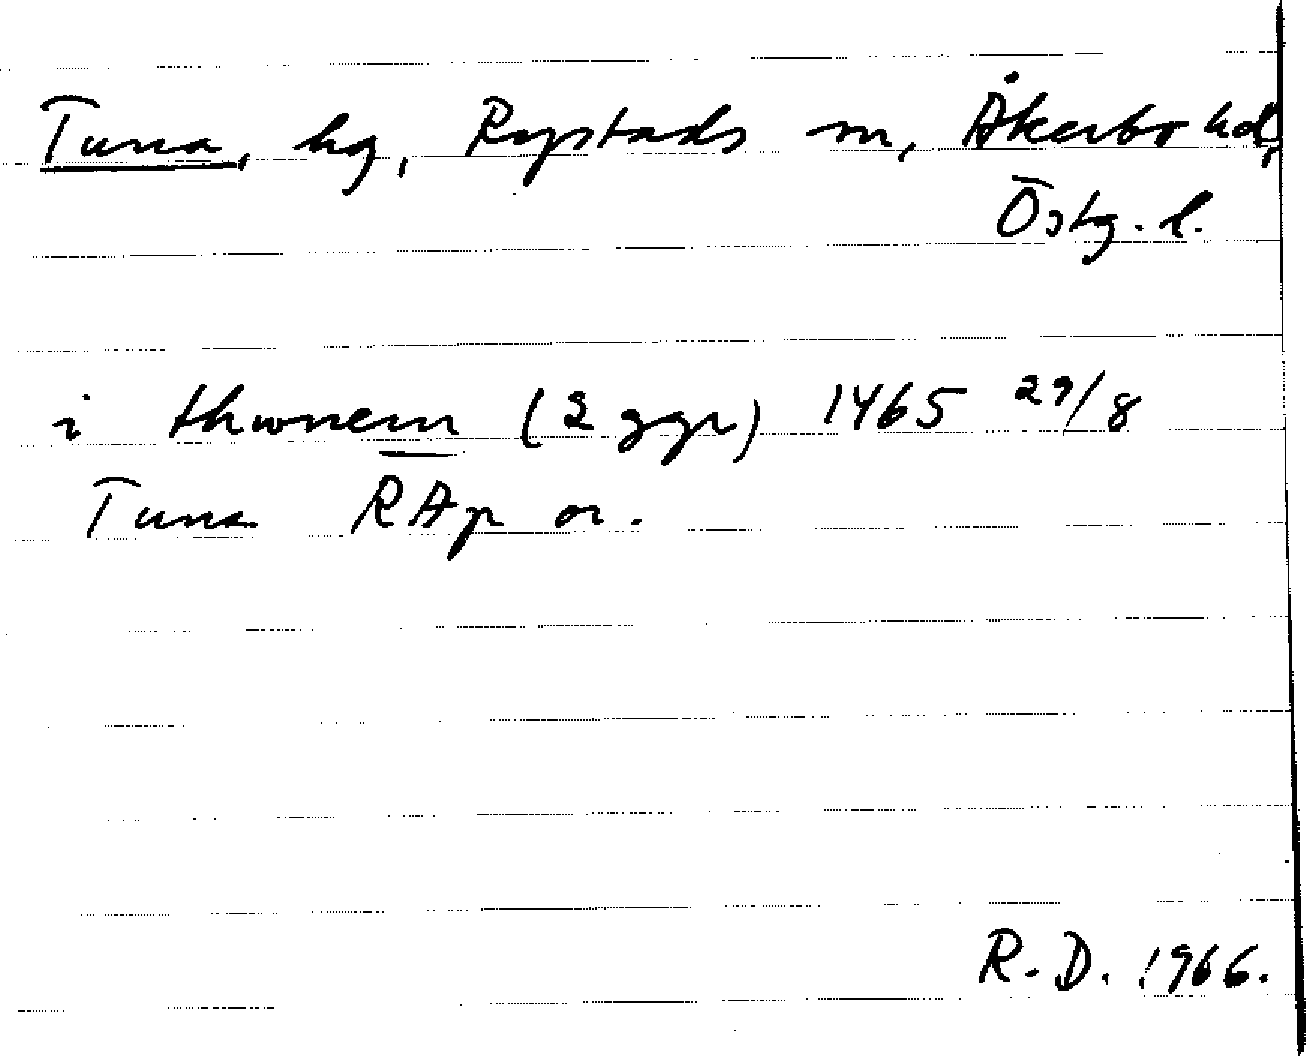 Tuna, hg, Rystads sn, Åkerbo hd,
Östg. l.
i thwnem (2 ggr) 1465 29/8
Tuna RAp or.
R.D. 1966.